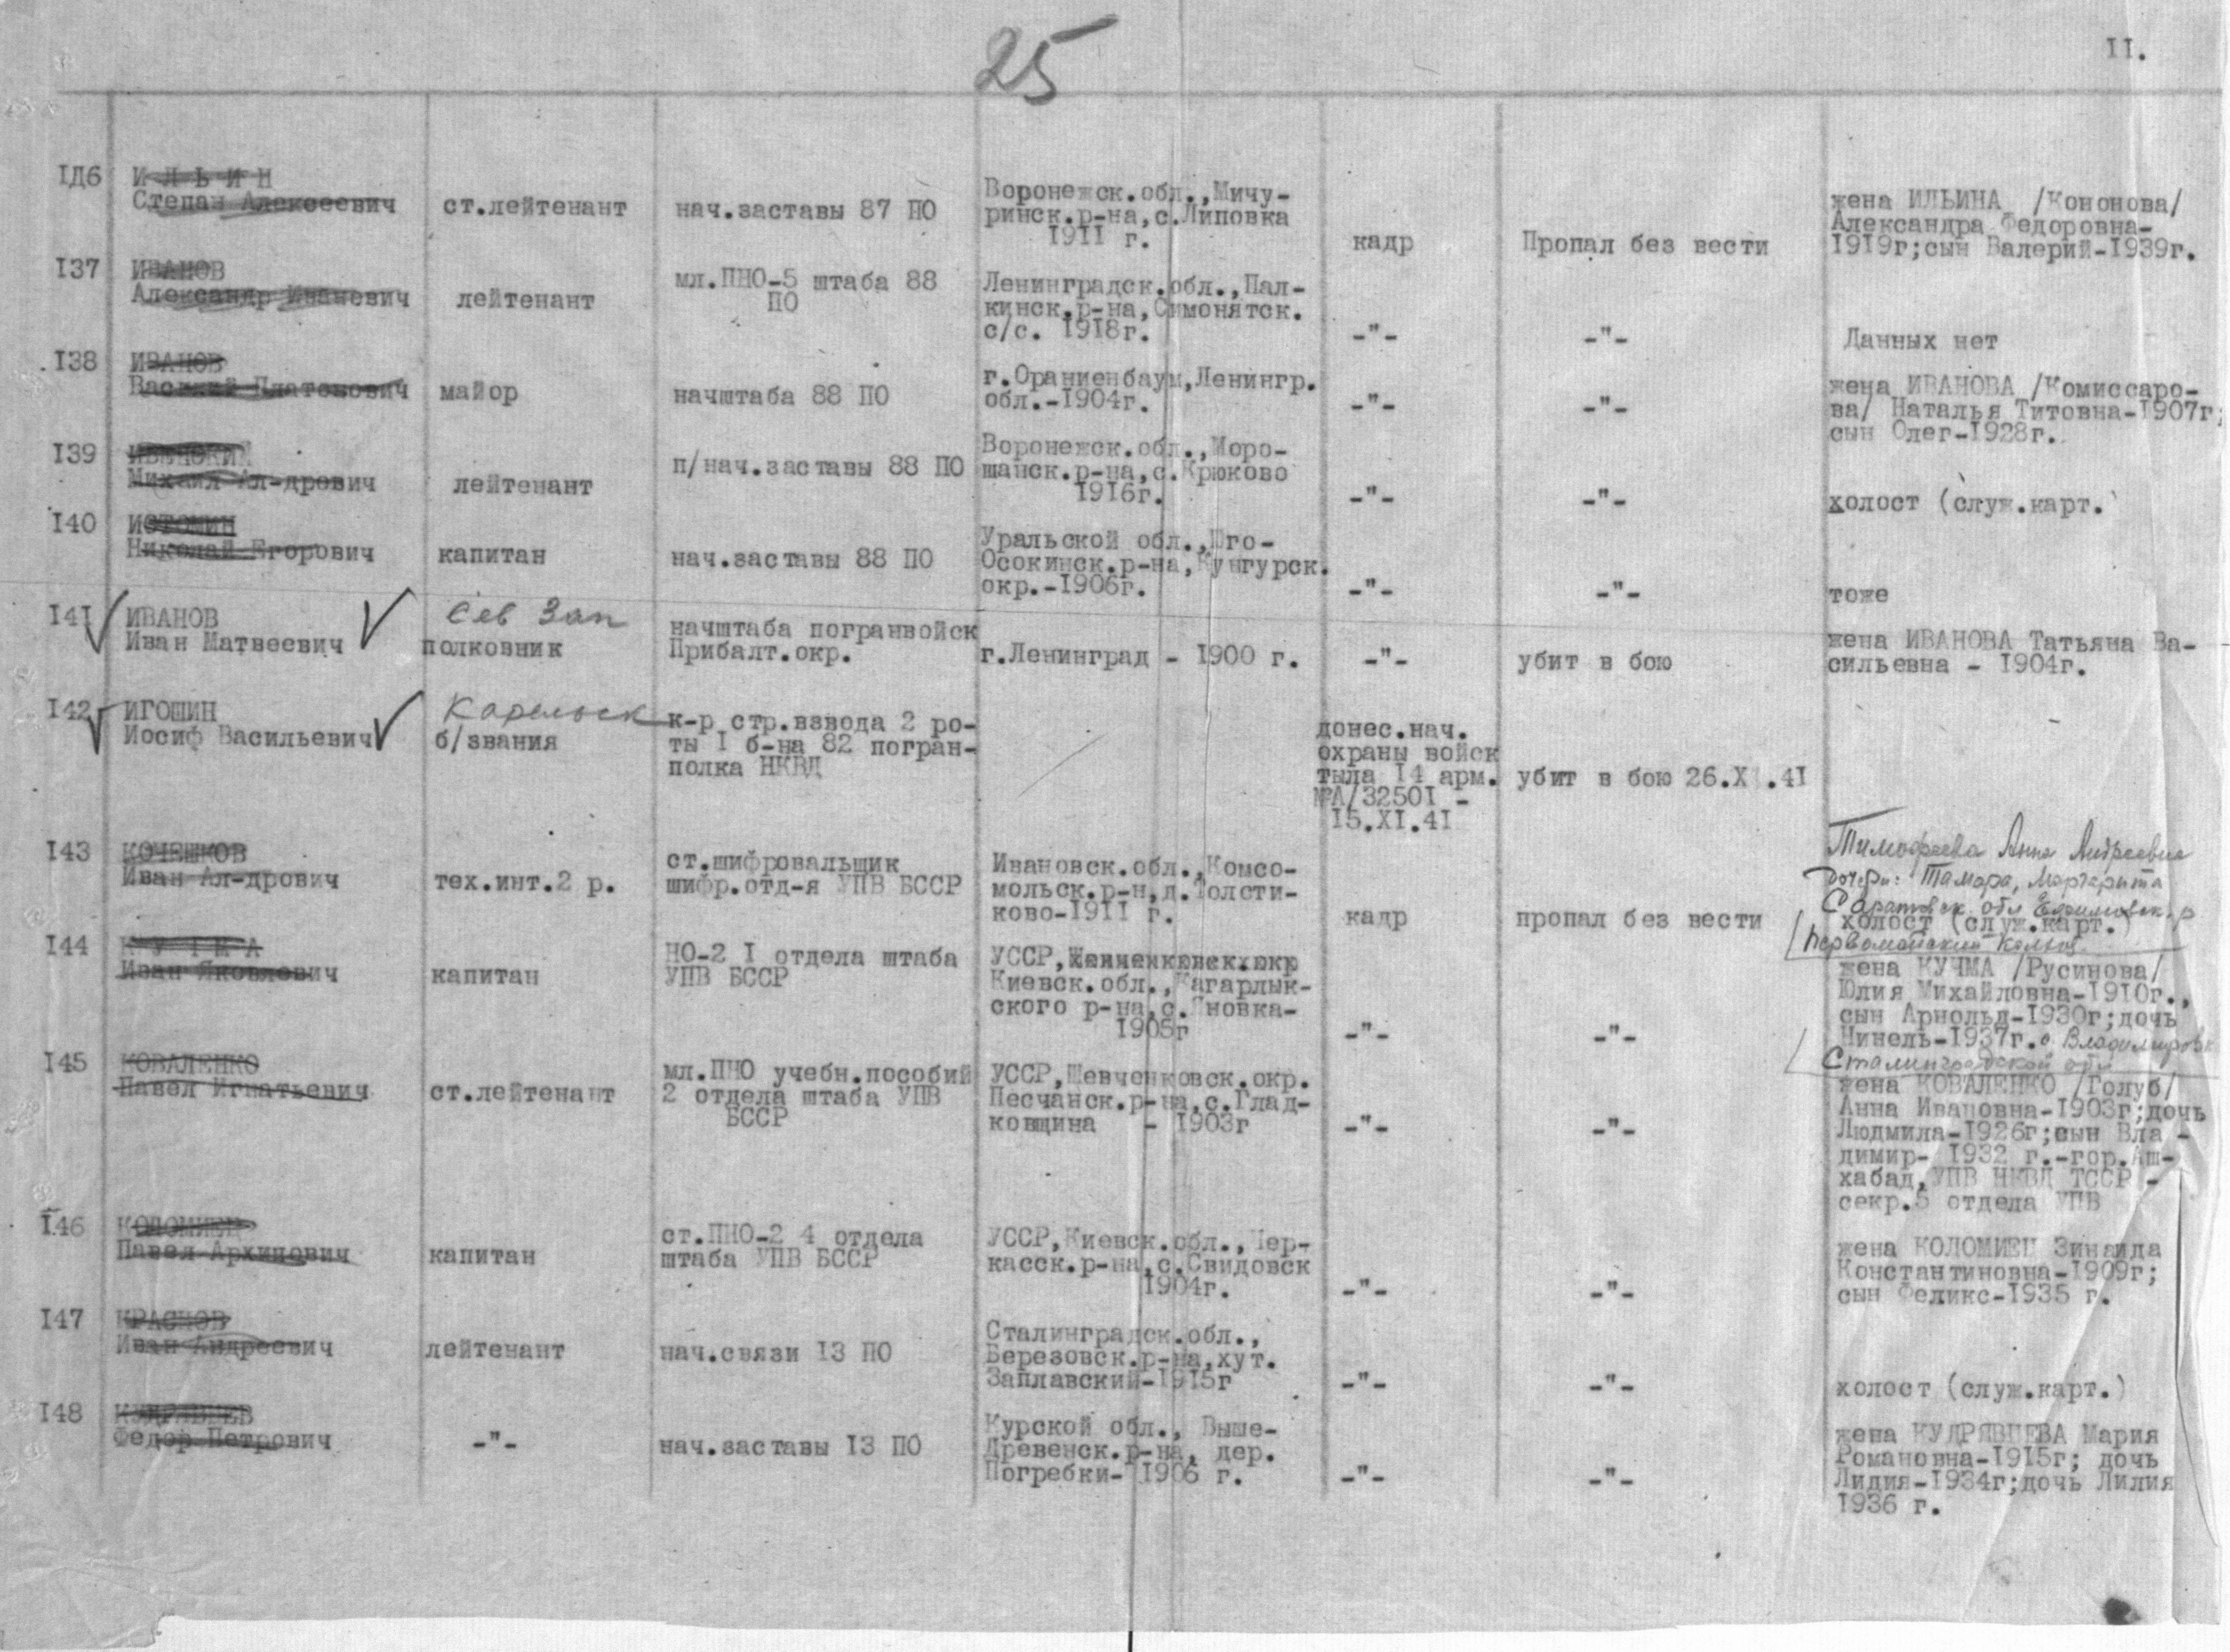 25
II.
IД6
ИЛЬИН
Степан Алексеевич
ст.лейтенант
нач.заставы 87 ПО
Воронежск.обл.,Мичу-
ринск.р-на,с.Липовка
1911 г.
кадр
Пропал без вести
жена ИЛЬИНА /Кононова/
Александра Федоровна-
1919г;сын Валерий-1939г.
I37
ИВАНОВ
Александр Иванович
лейтенант
мл.ПНО-5 штаба 88
ПО
Ленинградск.обл.,Пал-
кинск.р-на,Симонятск.
с/с. 1918г.
-"-
-"-
Данных нет
I38
ИВАНОВ
Василий Платонович
майор
начштаба 88 ПО
г.Ораниенбаум,Ленингр.
обл.-1904г.
-"-
-"-
жена ИВАНОВА /Комиссаро-
ва/ Наталья Титовна-1907г;
сын Олег-1928г.
I39
Михаил Ал-дрович
лейтенант
п/нач.заставы 88 ПО
Воронежск.обл.,Моро-
шанск.р-на,с.Крюково
1916г.
-"-
-"-
холост (служ.карт.
I40
ИСТОМИН
Николай Егорович
капитан
нач.заставы 88 ПО
Уральской обл.,Юго-
Осокинск.р-на,Кунгурск.
окр.-1906г.
-"-
-"-
тоже
I4I
ИВАНОВ
Иван Матвеевич
Сев Зап
полковник
начштаба погранвойск
Прибалт.окр.
г.Ленинград - 1900 г.
-"-
убит в бою
жена ИВАНОВА Татьяна Ва-
сильевна - 1904г.
I42
ИГОШИН
Иосиф Васильевич
Карельск
б/звания
к-р стр.взвода 2 ро-
ты I б-на 82 погран-
полка НКВД
донес.нач.
охраны войск
тыла I4 арм.
№А/3250I -
I5.XI.4I
убит в бою 26.X .4I
I43
КОЧЕШКОВ
Иван Ал-дрович
тех.инт.2 р.
ст.шифровальщик
шифр.отд-я УПВ БССР
Ивановск.обл.,Комсо-
мольск.р-н,д.Толсти-
ково-1911 г.
кадр
пропал без вести
Тимофеева Анна Андреевна
дочери: Тамара, Маргарита
Саратовск. обл
холост (служ.карт.)
Первомайский
I44
КУЧМА
Иван Яковлевич
капитан
НО-2 I отдела штаба
УПВ БССР
УССР,
Киевск.обл.,Кагарлык-
ского р-на,с.Яновка-
1905г
-"-
-"-
жена КУЧМА /Русинова/
Юлия Михайловна-1910г.,
сын Арнольд-1930г;дочь
Нинель-1937г. с Владимировк
Сталинградской обл
I45
КОВАЛЕНКО
Павел Игнатьевич
ст.лейтенант
мл.ПНО учебн.пособий
2 отдела штаба УПВ
БССР
УССР,Шевченковск.окр.
Песчанск.р-на,с.Глад-
ковщина - 1903г
-"-
-"-
жена КОВАЛЕНКО /Голуб/
Анна Ивановна-1903г;дочь
Людмила-1926г;сын Вла -
димир- 1932 г.-гор.Аш-
хабад,УПВ НКВД ТССР -
секр.5 отдела УПВ
I46
КОЛОМИЕЦ
Павел Архипович
капитан
ст.ПНО-2 4 отдела
штаба УПВ БССР
УССР,Киевск.обл.,Чер-
касск.р-на,с.Свидовск
1904г.
-"-
-"-
жена КОЛОМИЕЦ Зинаида
Константиновна-1909г;
сын Феликс-1935 г.
I47
КРАСНОВ
Иван Андреевич
лейтенант
нач.связи I3 ПО
Сталинградск.обл.,
Березовск.р-на,хут.
Заплавский-1915г
-"-
-"-
холост (служ.карт.)
I48
КУДРЯВЦЕВ
Федор Петрович
-"-
нач.заставы I3 ПО
Курской обл., Выше-
Древенск.р-на, дер.
Погребки- 1906 г.
-"-
-"-
жена КУДРЯВЦЕВА Мария
Романовна-1915г; дочь
Лидия-1934г;дочь Лилия
1936 г.